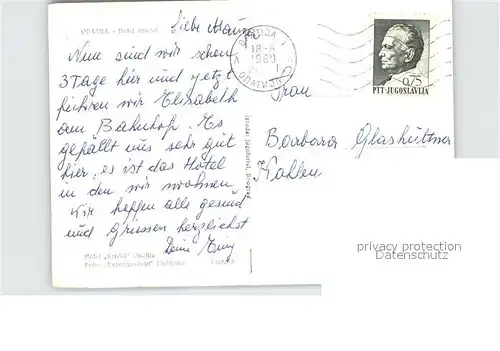 OPATIJA - Hotel Kristal
Liebe Mama
Nun sind wir schon
3 Tage hier und jetzt
führen wir Elisabeth
am Bahnhof. Es
gefällt uns sehr gut
hier, es ist das Hotel
in den wir wohnen,
wir hoffen alle gesund
und Grüssen herzlichst
Deine
Hotel „Kristal" Opatija
ОПАТИЈА
18-8
1969
OPATIJA
0,75
PTT JUGOSLAVIJA
Frau
Barbara Glashüttner
privacy protection
Datenschutz